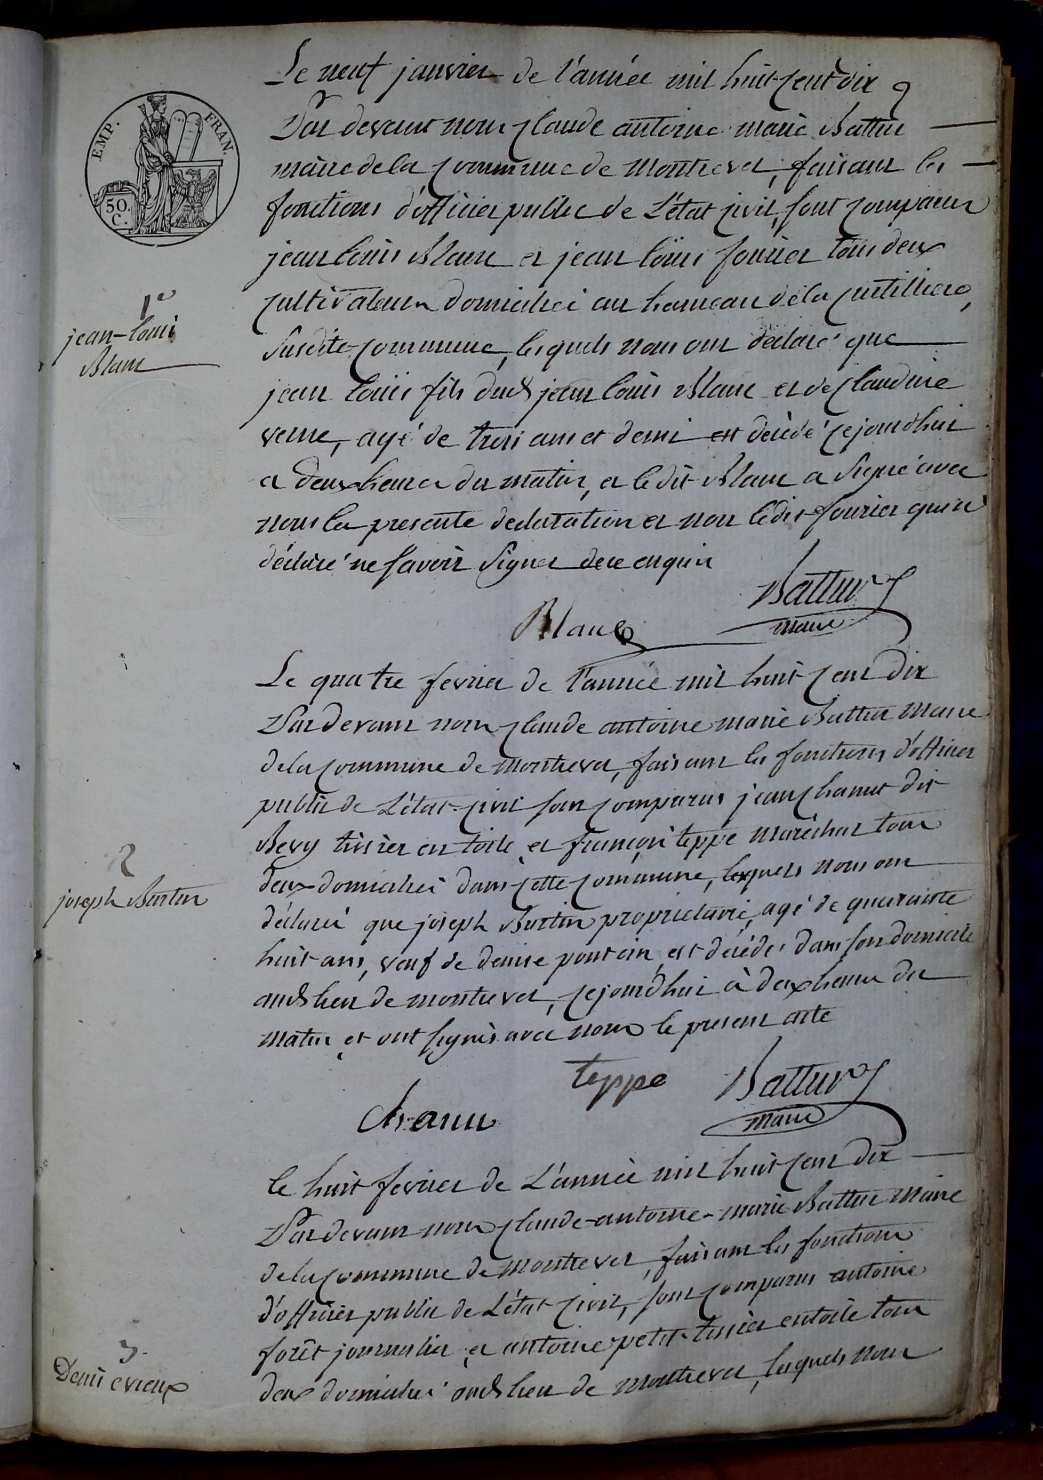 Le neuf janvier de l'année mil huit cent dix
Par devant nous Claude antoine marie Battur
maire de la Commune de Montrevel, faisant les
fonctions d'officier public de L'état civil, sont comparus
jean louis Blanc et jean louis fourier tous deux
cultivateurs domiciliés au hameau de la curtilliere,
susdite Commune, lesquels nous ont déclaré que
jean louis fils dud. jean louis Blanc et de Claudine
verne, agé de trois ans et demi est décédé cejourdhui
a deux heures du matin, et ledit Blanc a signé avec
nous la presente declaration et non ledit fourier qui a
déclaré ne savoir signer de ce enquis
EMP. FRAN.
50. C.
1º
jean-louis
Blanc
Blanc
Battur
maire
Le quatre fevrier de l'année mil huit cent dix
Par devant nous Claude antoine marie Battur Maire
de la Commune de Montrevel, faisant les fonctions d'officier
public de L'état-civil sont comparus jean Chanut dit
Revy tissier en toile et françois teppe maréchal tous
deux domiciliés dans cette Commune, lesquels nous ont
déclaré que joseph Burtin proprietaire, agé de quarante
huit ans, veuf de denise pontcin, est décédé dans son domicile
aud. lieu de montrevel, cejourdhui à deux heures du
matin et ont signés avec nous le present acte
2
joseph Burtin
teppe
Battur
maire
Chanu
le huit fevrier de L'année mil huit cent dix
Par devant nous Claude-antoine-marie Battur Maire
de la Commune de Montrevel, faisant les fonctions
d'officier public de L'état Civil, sont comparus antoine
forêt journalier et antoine petit tissier en toile tous
deux domiciliés aud. lieu de Montrevel, lesquels nous
3.
Denis evieux